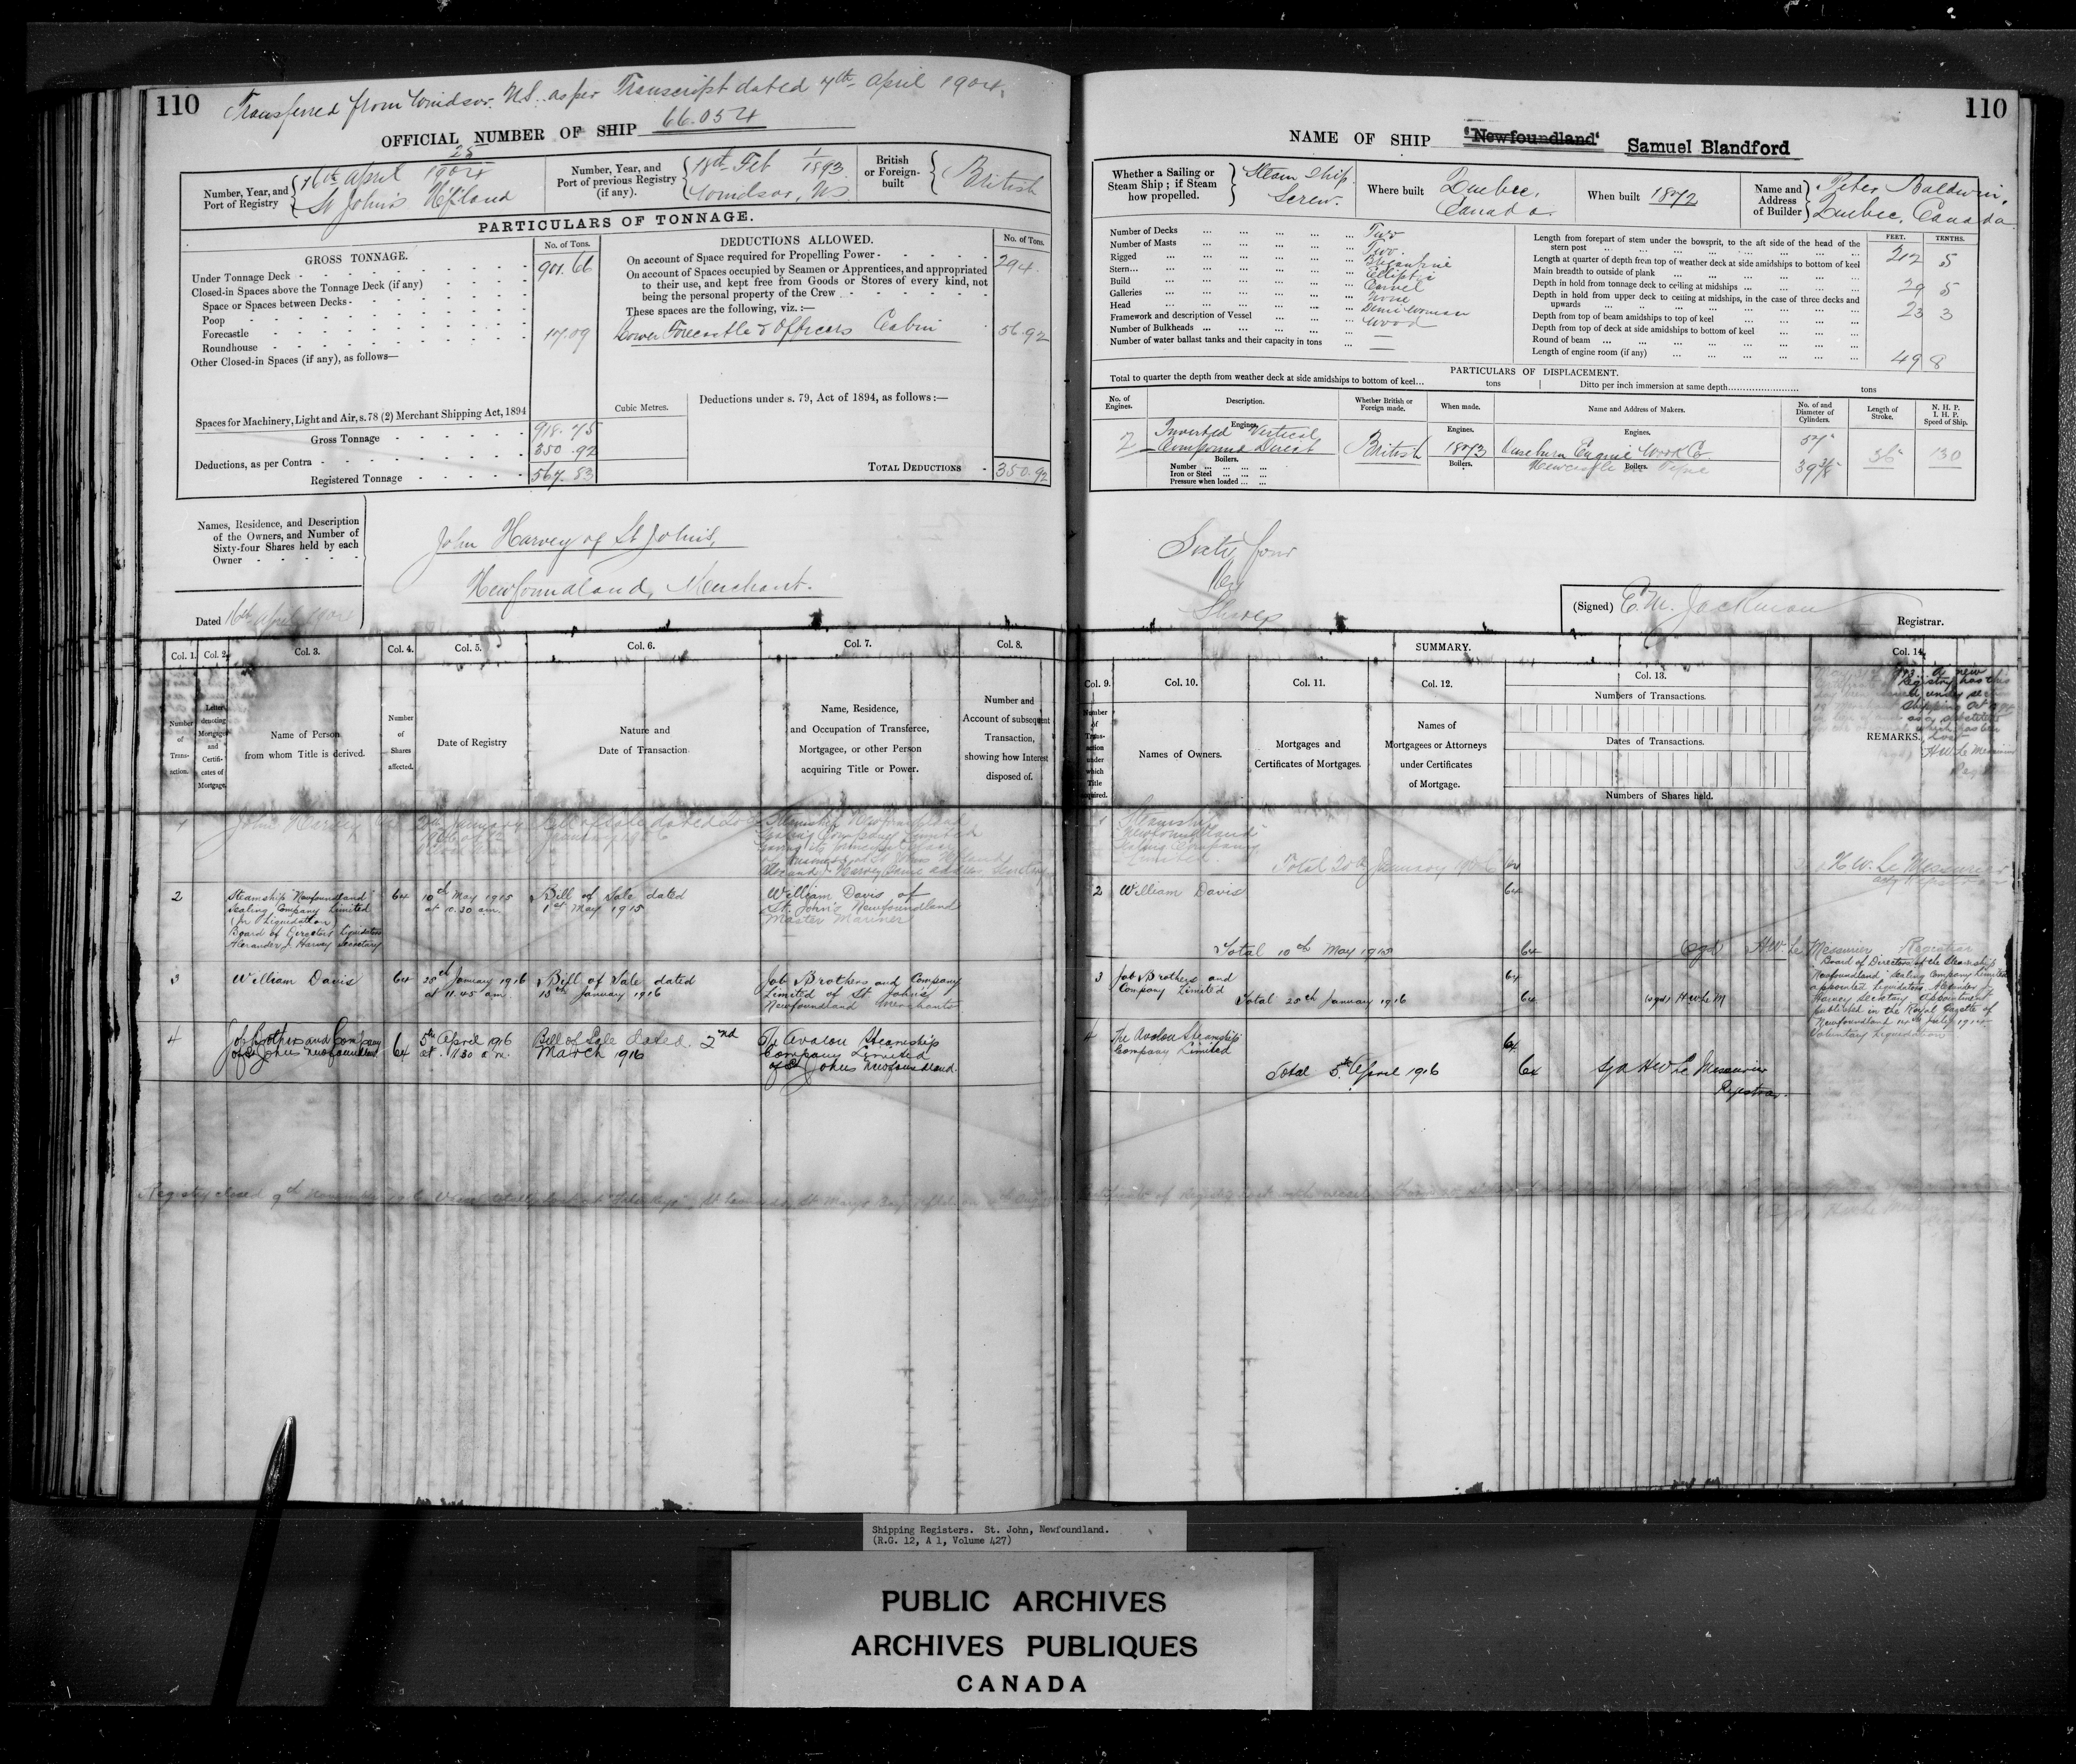 110
Transferred from Windsor. N.S. as per Transcript dated 7th April 1904.
OFFICIAL NUMBER OF SHIP 66.054
Number, Year, and Port of Registry
25
16th April 1904
St John's Nfland
Number, Year, and Port of previous Registry (if any).
18th Feb 1/1893.
Windsor, N.S.
British or Foreign-built
British
PARTICULARS OF TONNAGE.
GROSS TONNAGE.
No. of Tons.
Under Tonnage Deck 901.66
Closed-in Spaces above the Tonnage Deck (if any)
Space or Spaces between Decks
Poop
Forecastle
Roundhouse 17.09
Other Closed-in Spaces (if any), as follows—
Spaces for Machinery, Light and Air, s. 78 (2) Merchant Shipping Act, 1894
Gross Tonnage 918.75
Deductions, as per Contra 350.92
Registered Tonnage 567.83
DEDUCTIONS ALLOWED.
No. of Tons.
On account of Space required for Propelling Power 294.
On account of Spaces occupied by Seamen or Apprentices, and appropriated
to their use, and kept free from Goods or Stores of every kind, not
being the personal property of the Crew
These spaces are the following, viz.:—
Lower Forecastle & Officers Cabin 56.92
Cubic Metres.
Deductions under s. 79, Act of 1894, as follows:—
TOTAL DEDUCTIONS 350.92
Names, Residence, and Description
of the Owners, and Number of
Sixty-four Shares held by each
Owner
John Harvey of St John's,
Newfoundland, Merchant.
Dated 16th April 1904
Col. 1.
Col. 2.
Col. 3.
Col. 4.
Col. 5.
Col. 6.
Col. 7.
Col. 8.
Number of Transaction.
Letter denoting Mortgages and Certificates of Mortgage.
Name of Person from whom Title is derived.
Number of Shares affected.
Date of Registry
Nature and Date of Transaction.
Name, Residence, and Occupation of Transferee, Mortgagee, or other Person acquiring Title or Power.
Number and Account of subsequent Transaction, showing how Interest disposed of.
1
John Harvey
Bill of Sale dated
January 1906
Steamship Newfoundland
Sealing Company Limited
having its principal place
of business at St Johns Nfland
2
Steamship "Newfoundland"
Sealing Company Limited
(In Liquidation)
Board of Directors Liquidators
Alexander J. Harvey Secretary
64
10th May 1915
at 10.30 am.
Bill of Sale dated
1st May 1915
William Davis of
St. John's Newfoundland
Master Mariner
3
William Davis
64
25th January 1916
at 11.45 am.
Bill of Sale dated
15th January 1916
Job Brothers and Company
Limited of St. John's
Newfoundland Merchants.
4
Job Brothers and Company
of St Johns Newfoundland
64
5th April 1916
at 11.30 a.m.
Bill of Sale dated 2nd
March 1916
The Avalon Steamship
Company Limited
of St Johns Newfoundland.
Registry closed 9th November 1916 Vessel totally lost
110
NAME OF SHIP "Newfoundland" Samuel Blandford
Whether a Sailing or Steam Ship; if Steam how propelled.
Steam Ship
Screw.
Where built
Quebec,
Canada.
When built 1872
Name and Address of Builder
Peter Baldwin,
Quebec, Canada
Number of Decks Two
Number of Masts Two.
Rigged Brigantine
Stern Elliptic
Build Carvel
Galleries None
Head Demi Woman
Framework and description of Vessel Wood
Number of Bulkheads —
Number of water ballast tanks and their capacity in tons —
FEET.
TENTHS.
Length from forepart of stem under the bowsprit, to the aft side of the head of the
stern post 212 5
Length at quarter of depth from top of weather deck at side amidships to bottom of keel
Main breadth to outside of plank 29 5
Depth in hold from tonnage deck to ceiling at midships
Depth in hold from upper deck to ceiling at midships, in the case of three decks and
upwards 23 3
Depth from top of beam amidships to top of keel
Depth from top of deck at side amidships to bottom of keel
Round of beam
Length of engine room (if any) 49 8
PARTICULARS OF DISPLACEMENT.
Total to quarter the depth from weather deck at side amidships to bottom of keel... tons
Ditto per inch immersion at same depth tons
No. of Engines.
Description.
Whether British or Foreign made.
When made.
Name and Address of Makers.
No. of and Diameter of Cylinders.
Length of Stroke.
N. H. P.
I. H. P.
Speed of Ship.
2
Engines.
Inverted Vertical
Compound Direct
Boilers.
Number
Iron or Steel
Pressure when loaded
British
Engines.
1873
Boilers.
Engines.
Ouseburn Engine Work Co
Newcastle on Tyne
Boilers.
57"
39 3/8"
36"
130
Sixty four
Shares
(Signed) E. M. Jackman
Registrar.
SUMMARY.
Col. 9.
Col. 10.
Col. 11.
Col. 12.
Col. 13.
Col. 14.
Number of Transaction under which Title acquired.
Names of Owners.
Mortgages and Certificates of Mortgages.
Names of Mortgagees or Attorneys under Certificates of Mortgage.
Numbers of Transactions.
Dates of Transactions.
Numbers of Shares held.
REMARKS.
1
Steamship
"Newfoundland"
Sealing Company
Limited.
Total 20th January 1906 64
H. W. Le Messurier
2
William Davis
64
Total 10th May 1915
64
Sgd H W Le Messurier Registrar
3
Job Brothers and
Company Limited
64
Total 25th January 1916
64
(sgd) HWLeM
4
The Avalon Steamship
Company Limited
64
Total 5th April 1916
64
Sgd HW Le Messurier
Registrar.
Board of Directors of the Steamship
Newfoundland Sealing Company Limited
appointed Liquidators Alexander J
Harvey Secretary Appointment
published in the Royal Gazette of
Newfoundland 14th July 1914
Voluntary Liquidation
Shipping Registers. St. John, Newfoundland.
(R.G. 12, A 1, Volume 427)
PUBLIC ARCHIVES
ARCHIVES PUBLIQUES
CANADA